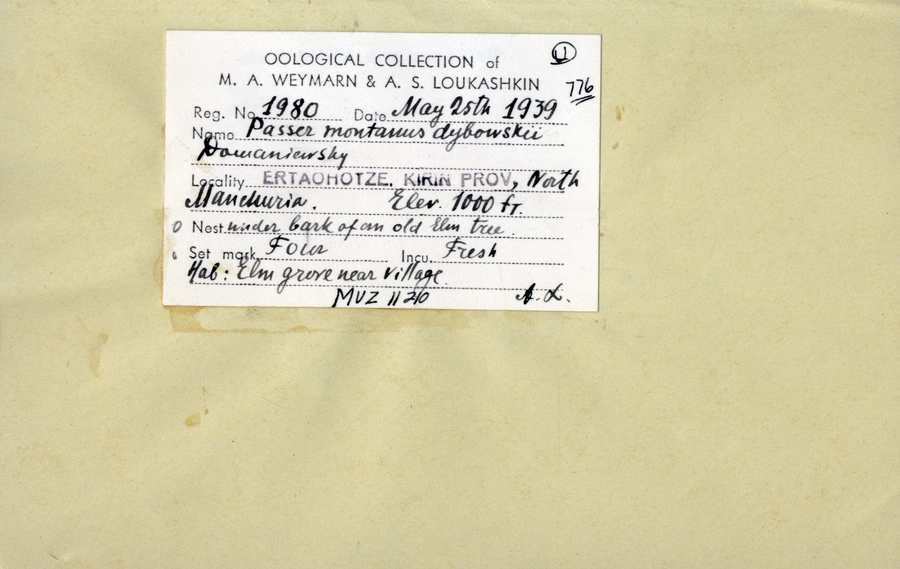 OOLOGICAL COLLECTION of
M. A. WEYMARN & A. S. LOUKASHKIN
776
Reg. No 1980 Date May 25th 1939
Name Passer montanus dybowskii
Domaniewsky
Locality ERTAOHOTZE, KIRIN PROV., North
Manchuria. Elev. 1000 ft.
Nest under bark of an old Elm tree.
Set mark Four Incu. Fresh
Hab: Elm grove near village.
MVZ 11210 A. L.